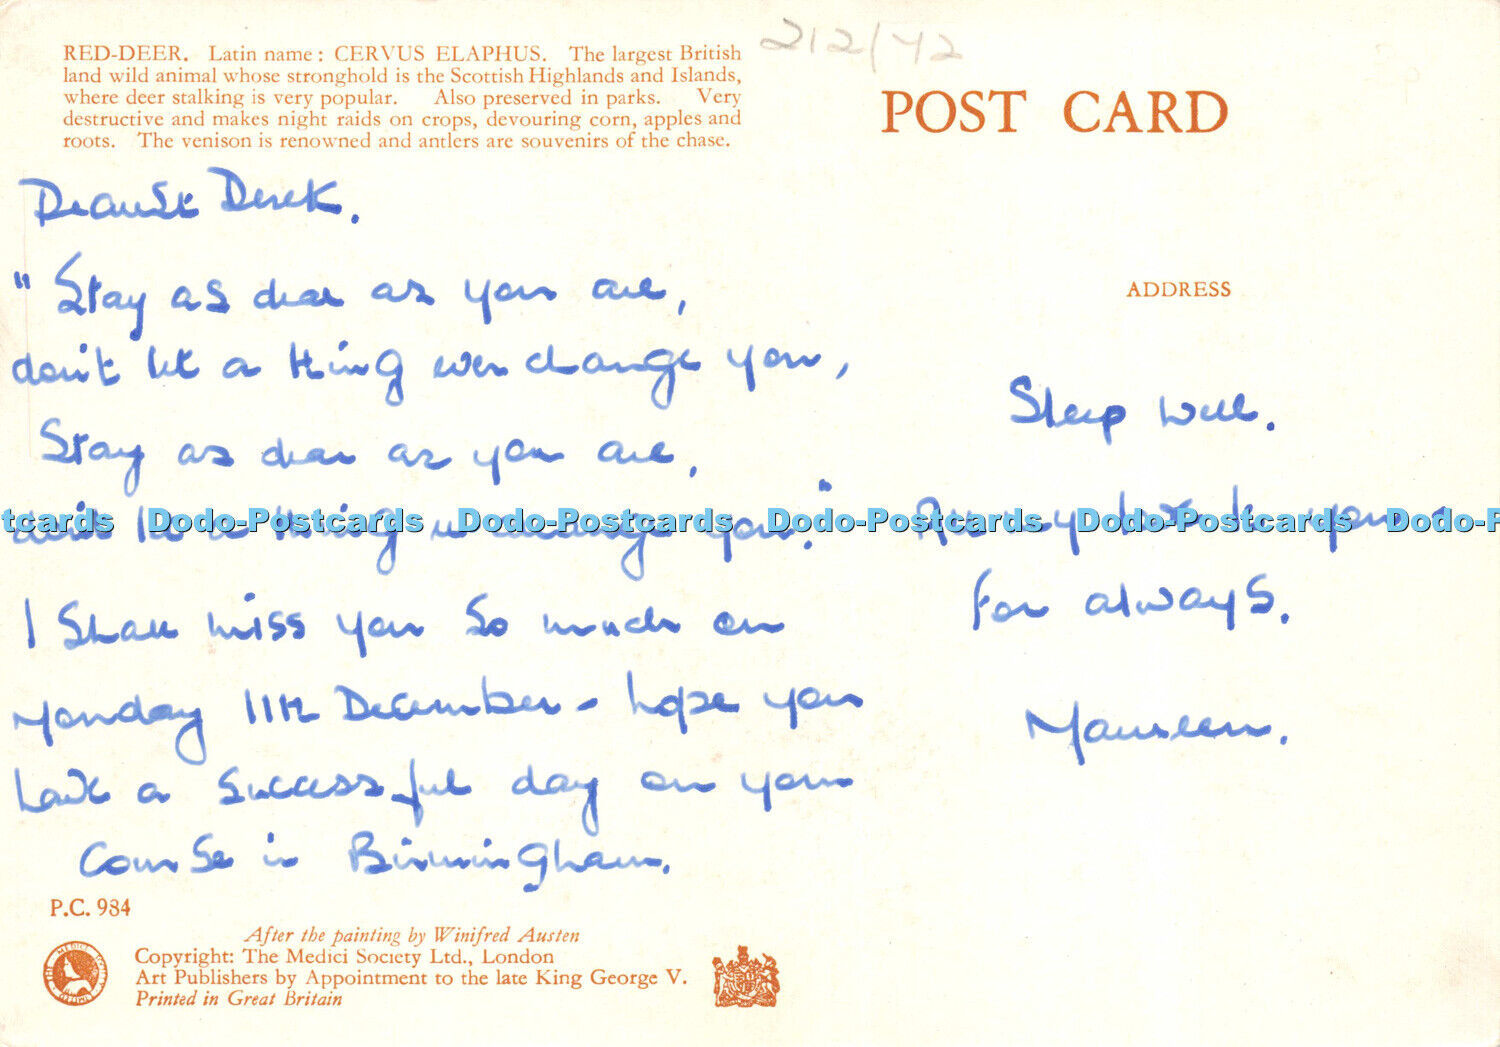 212/42
RED-DEER. Latin name: CERVUS ELAPHUS. The largest British
land wild animal whose stronghold is the Scottish Highlands and Islands,
where deer stalking is very popular. Also preserved in parks. Very
destructive and makes night raids on crops, devouring corn, apples and
roots. The venison is renowned and antlers are souvenirs of the chase.
POST CARD
Dearest Derek.
"Stay as dear as you are,
don't let a thing ever change you,
Stay as dear as you are,
don't let a thing change you."
I shall miss you so much on
Monday 11th December - hope you
have a successful day on your
Course in Birmingham.
ADDRESS
Sleep well.
All my love to you
for always.
Maureen.
P.C. 984
After the painting by Winifred Austen
Copyright: The Medici Society Ltd., London
Art Publishers by Appointment to the late King George V.
Printed in Great Britain
THE MEDICI SOCIETY LIMITED
tcards Dodo-Postcards Dodo-Postcards Dodo-Postcards Dodo-Postcards Dodo-P